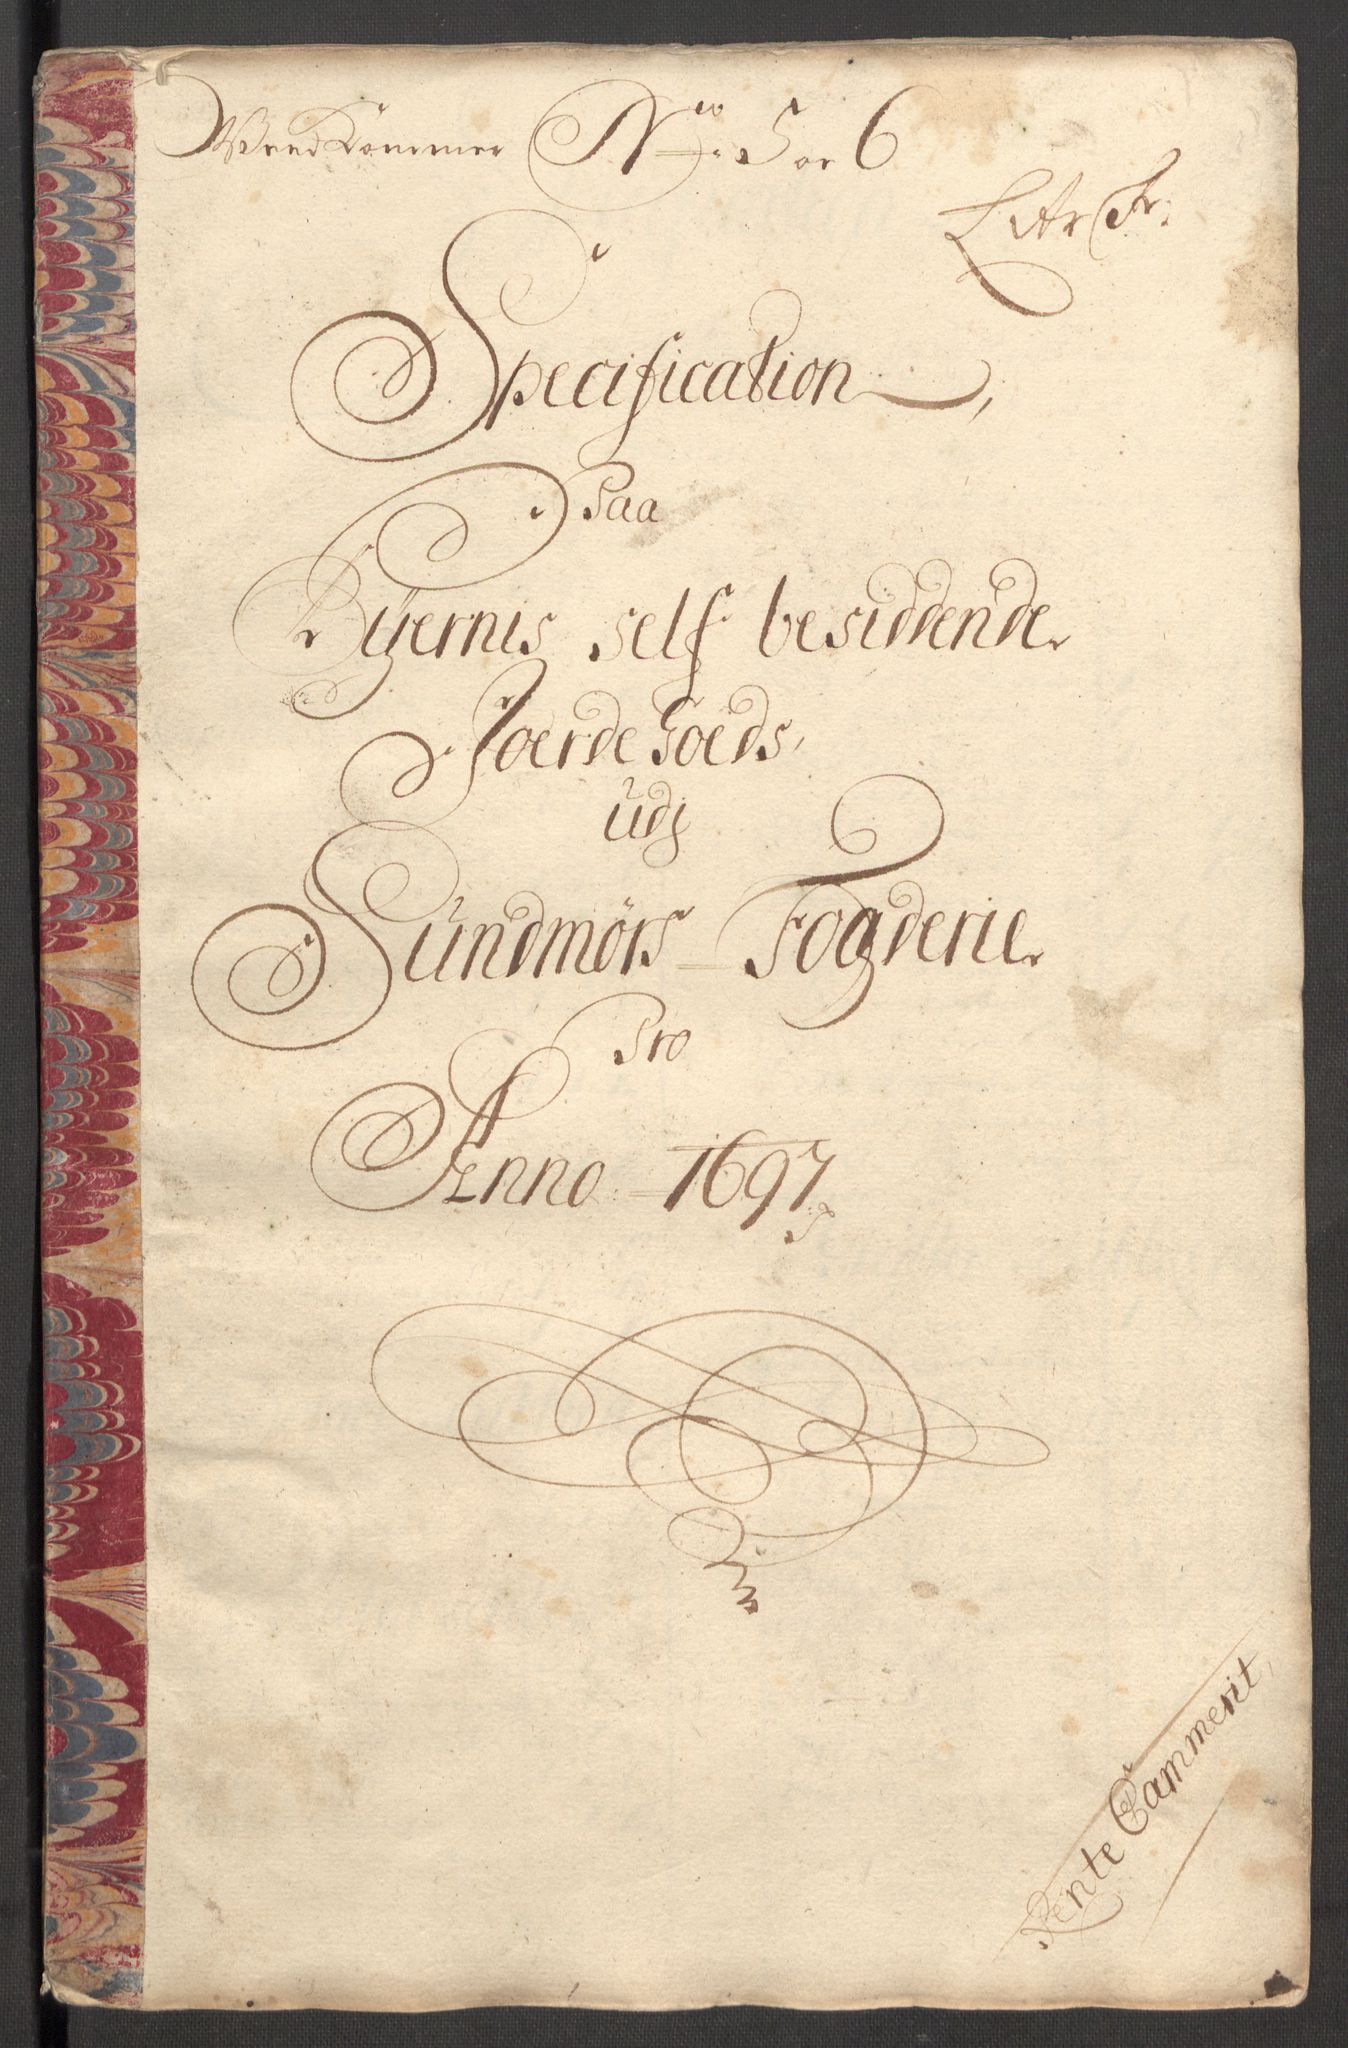 Vedkommer No: 5 or 6
Litr Fr.
Specification,
Paa
Byernis self besiddende
Joerde Goeds,
udj
Sundmørs Fogderie
Pro
Anno 1697
Rente Cammerit,